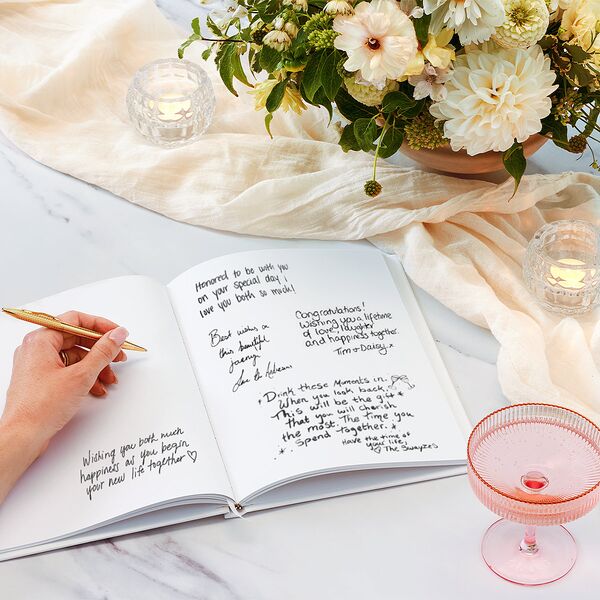 Wishing you both much
happiness as you begin
your new life together ♡
Honored to be with you
on your special day!
love you both so much!
Best wishes on
this beautiful
Congratulations!
Wishing you a lifetime
of love, laughter
and happiness together.
Tim & Daisy x
Drink these Moments in.
When you look back,
This will be the gift
that you will cherish
the most. The time you
Spend together.
Have the time of
your life,
♡ The Swayzes